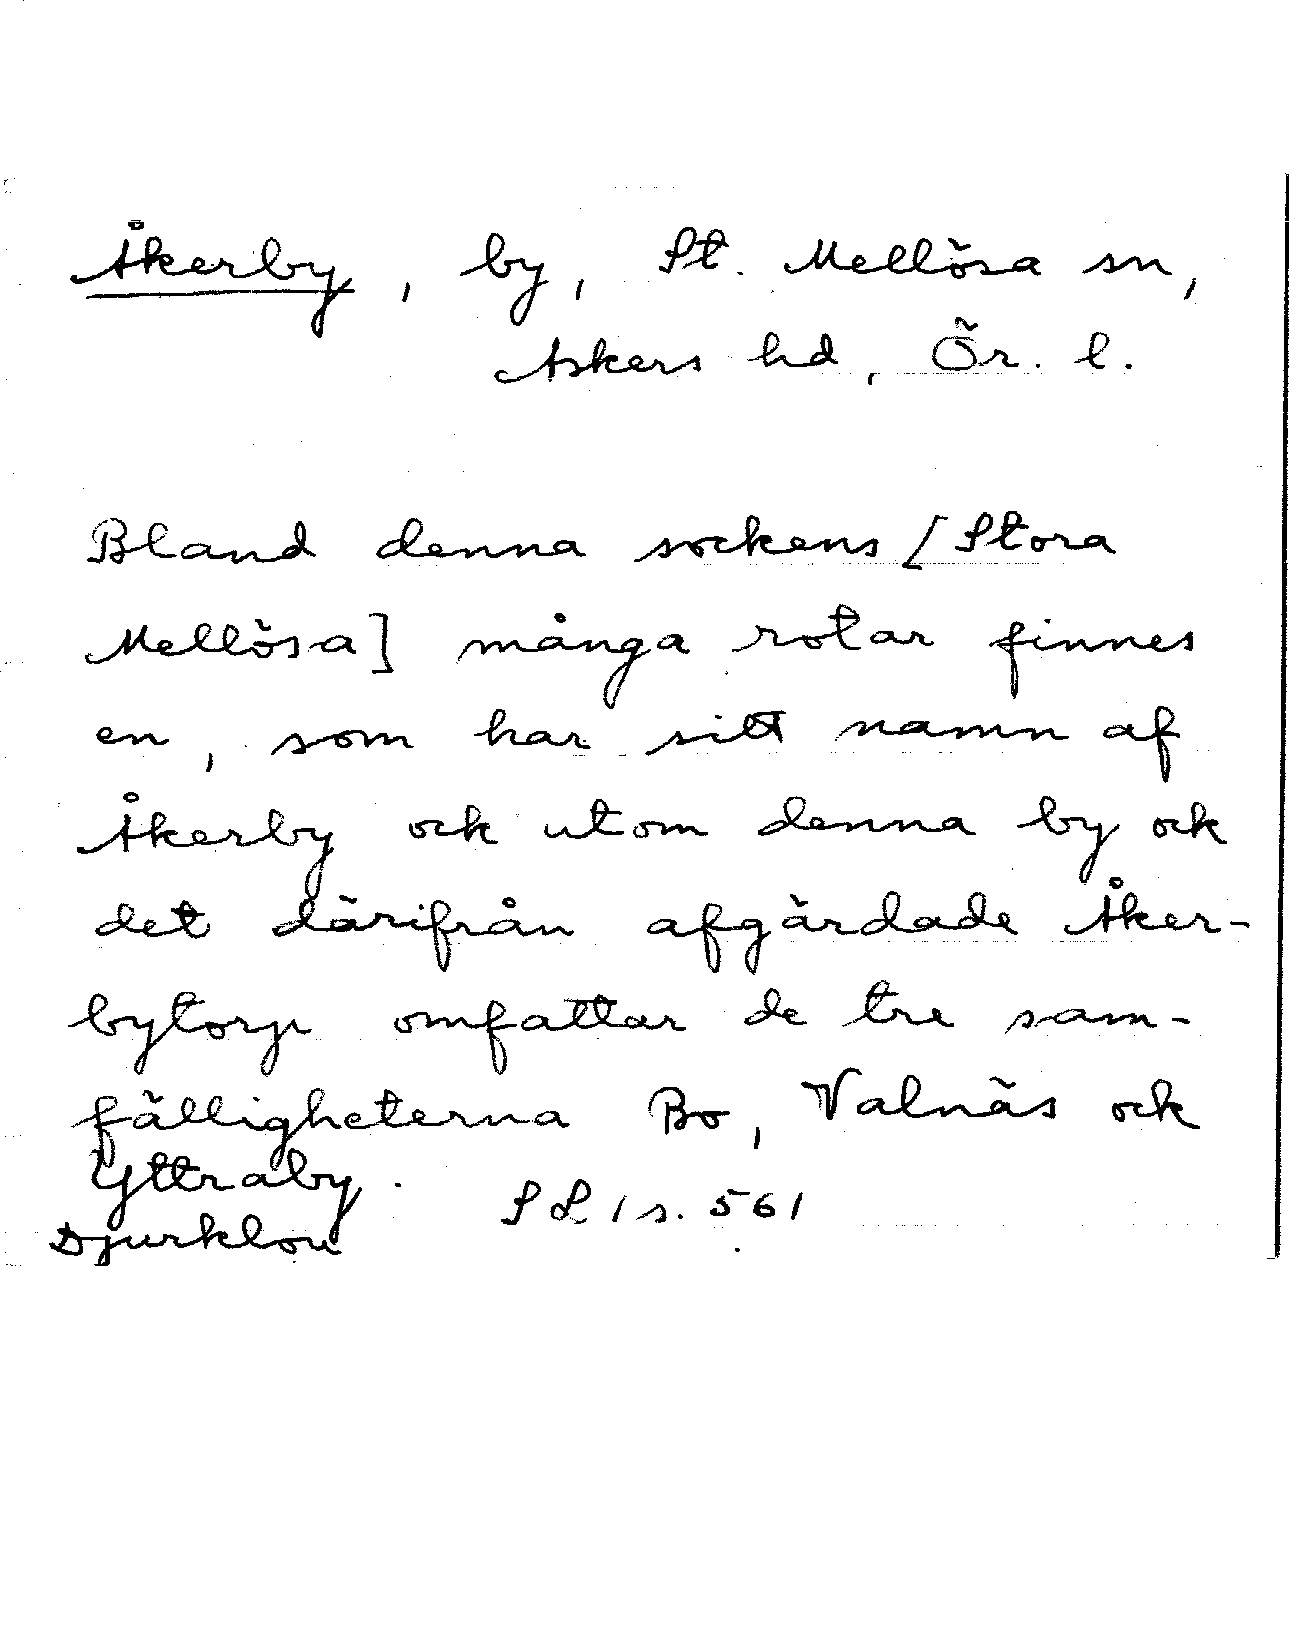 Åkerby, by, St. Mellösa sn,
Askers hd, Ör. l.
Bland denna sockens [Stora
Mellösa] många rotar finnes
en, som har sitt namn af
Åkerby ock utom denna by ock
det därifrån afgärdade Åker-
bytorp omfattar de tre sam-
fälligheterna Bo, Valnäs ock
Yttraby. SL 1 s. 561
Djurklou